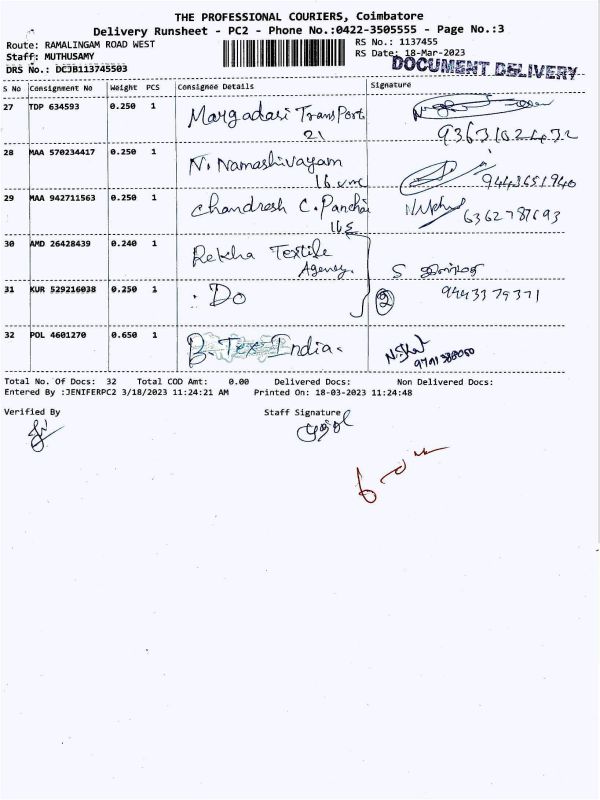 THE PROFESSIONAL COURIERS, Coimbatore
Delivery Runsheet - PC2 - Phone No.:0422-3505555 - Page No.:3
Route: RAMALINGAM ROAD WEST RS No.: 1137455
Staff: MUTHUSAMY RS Date: 18-Mar-2023
DRS No.: DCJB113745503 DOCUMENT DELIVERY
S No Consignment No Weight PCS Consignee Details Signature
27 TDP 634593 0.250 1 Margadasi Transport
21
28 MAA 570234417 0.250 1 N. Namashivayam
16 9443651940
29 MAA 942711563 0.250 1 Chandresh C. Panchai
6362787693
30 AMD 26428439 0.240 1 Rekha Textile
Agency. S
31 KUR 529216038 0.250 1 : Do 2 9443379371
32 POL 4601270 0.650 1 B. Tex India.
Total No. Of Docs: 32 Total COD Amt: 0.00 Delivered Docs: Non Delivered Docs:
Entered By :JENIFERPC2 3/18/2023 11:24:21 AM Printed On: 18-03-2023 11:24:48
Verified By Staff Signature